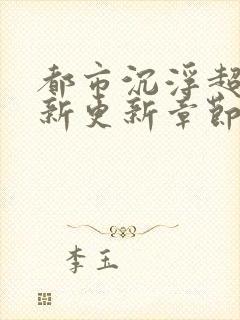 都市沉浮超
新更新章節
李玉